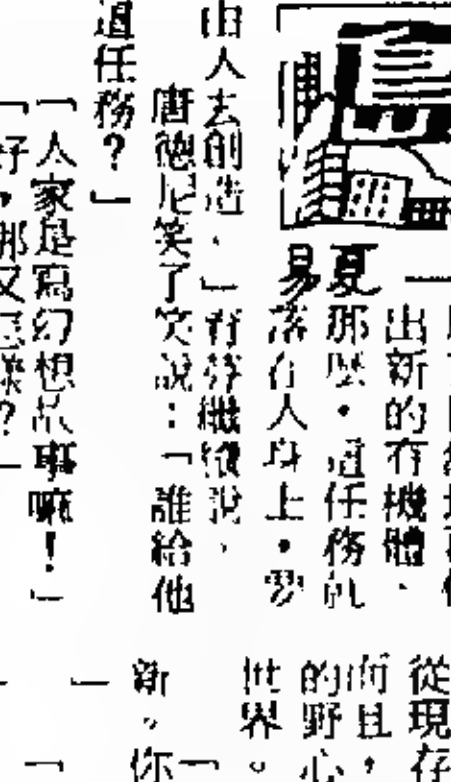 出新的有機體、
那麼，這任務就
落在人身上，要
由人去創造，」育芬繼續說，
唐德尼笑了笑說：「誰給他
這任務？」
「人家是寫幻想故事嘛！」
「好，那又怎樣？」
夏易
從現存
而且，
的野心
世界。
「
新。你
」